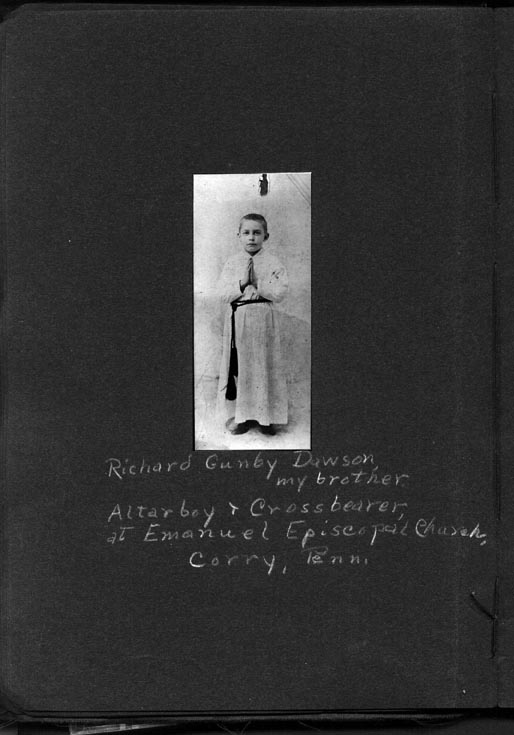 Richard Gunby Dawson
my brother.
Altarboy & Crossbearer,
at Emanuel Episcopal Church,
Corry, Penn.